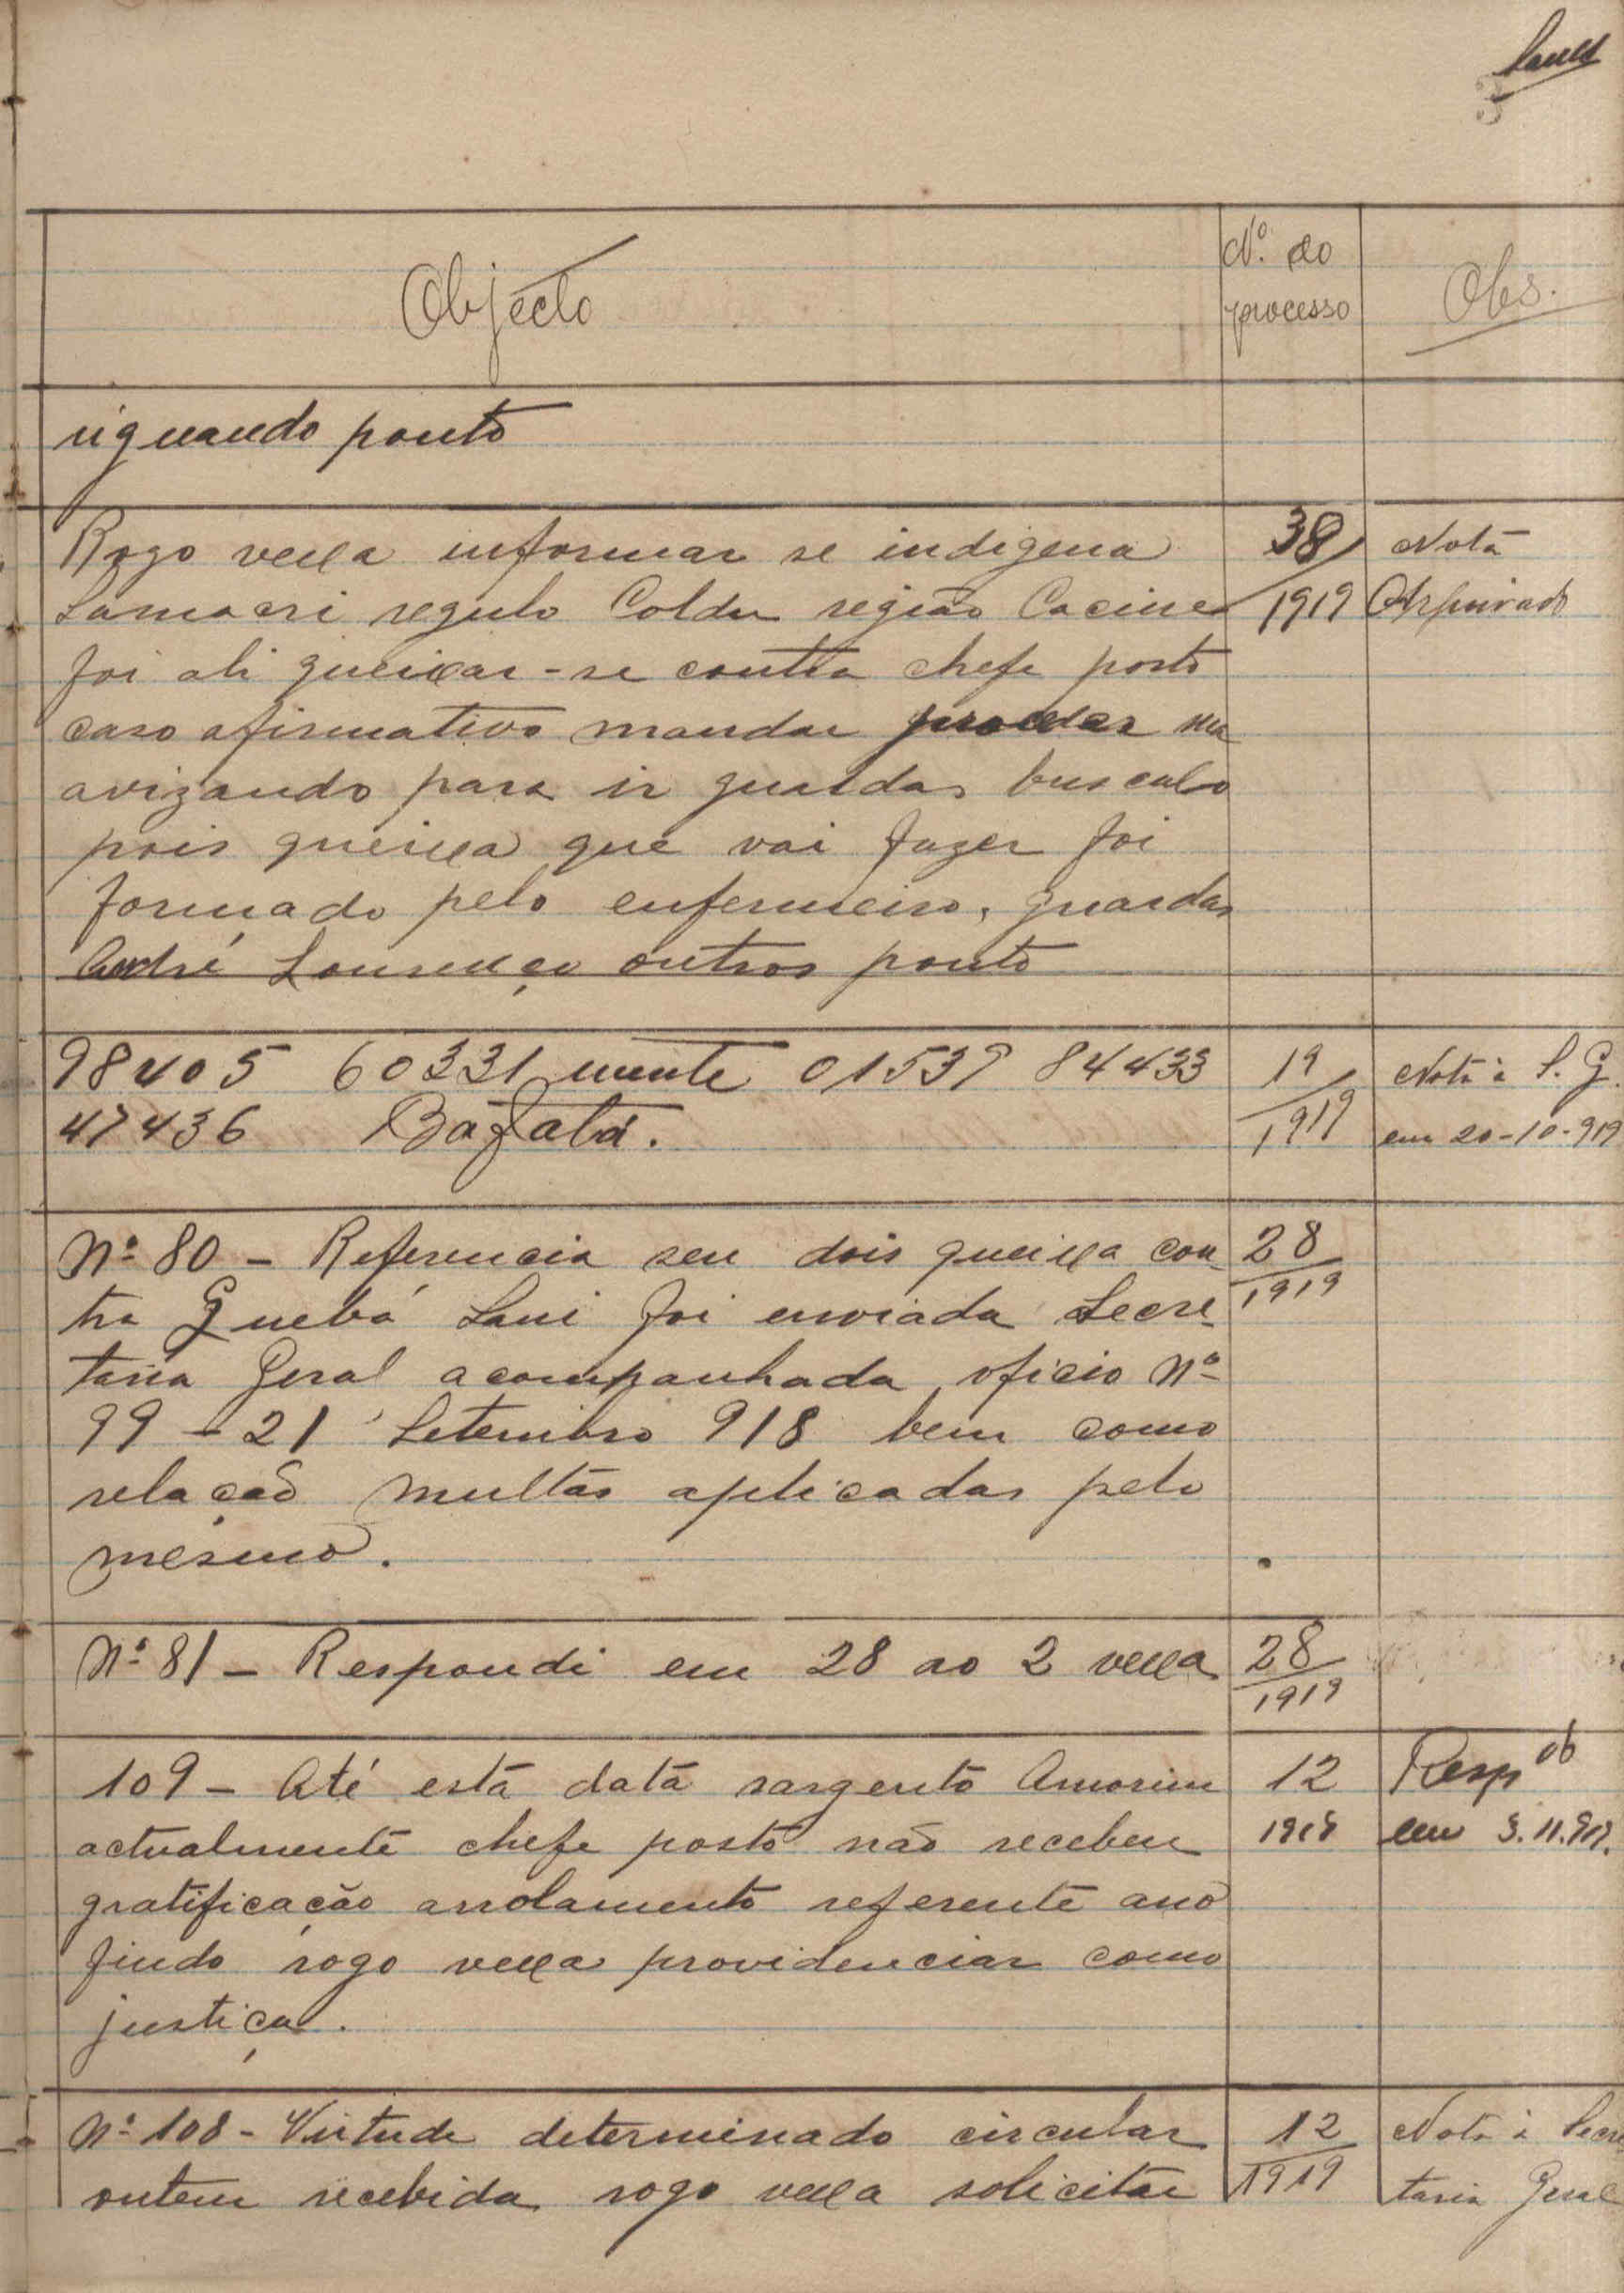 3
Objecto
Nº do
processo
Obs.
signando ponto
Rogo vexa informar se indigena
38/1919
Nota
regulo Coldu região Cacine
foi ali queixar-se contra chefe posto
caso afirmativo mandar
avizando para ir guardas buscalo
pois queixa que vai fazer foi
formado pelo enfermeiro, guardas
André Lourenço outros ponto
98405 60331 mente 01539 84433
47436 Bafatá.
19/1919
Nota à S. G.
em 20-10-919
Nº 80 - Referencia seu dois queixa con-
tra Quebá Sani foi enviada Secre-
taria Geral acompanhada oficio Nº
99 - 21 Setembro 918 bem como
relação multas aplicadas pelo
mesmo.
28/1919
Nº 81 - Respondi em 28 ao 2 vexa
28/1919
109 - Até esta data sargento Amorim
actualmente chefe posto não recebeu
gratificação arrolamento referente ano
findo rogo vexa providenciar como
justiça.
12
1919
Resp
em 3.11.919.
Nº 108 - Virtude determinado circular
ontem recebida rogo vexa solicitar
12/1919
Nota à Secre
taria Geral